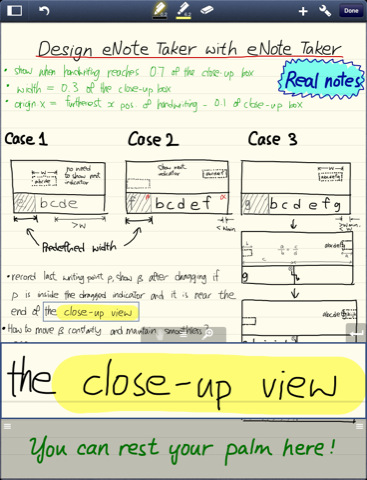 Done
Design eNote Taker with eNote Taker
• show when handwriting reaches 0.7 of the close-up box
• width = 0.3 of the close-up box
• origin x = furtherest x pos. of handwriting - 0.1 of close-up box
Real notes
Case 1 Case 2 Case 3
w
abcde
no need to show next indicator
show next indicator
w
abcdefg
e bcde
f α bcdef α
g bcdefg
>w
Predefined width
abcdefg
g
• record last writing point p, show β after dragging if
p is inside the dragged indicator and it is near the
end of the close-up view
• How to move β constantly and maintain smoothness?
the close-up view
You can rest your palm here!